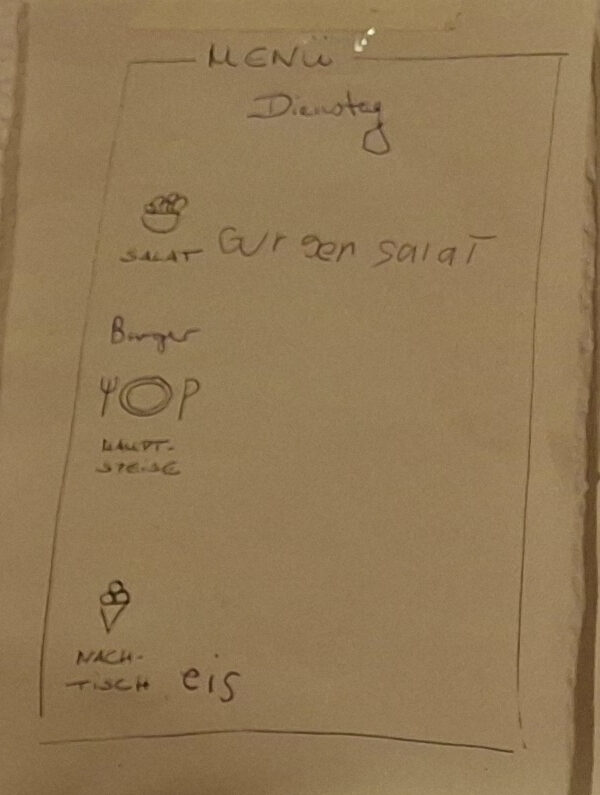 MENÜ
Dienstag
SALAT Gurgen salat
Burger
HAUPT-
SPEISE
NACH-
TISCH eis